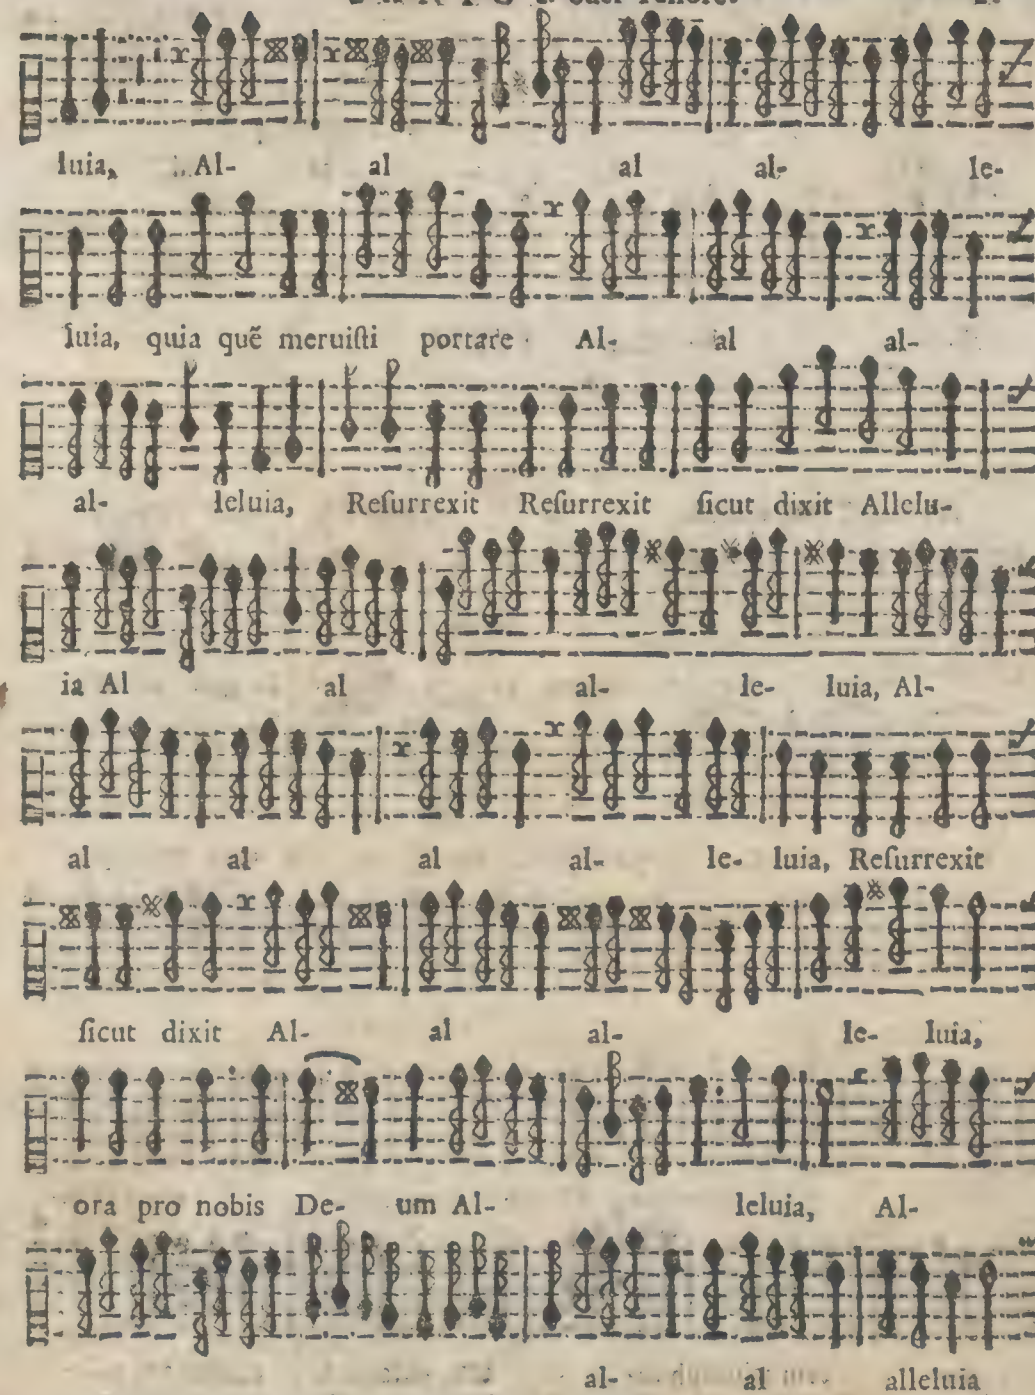 luia, Al- al al al- le-
luia, quia quẽ meruiſti portare Al- al al-
al- leluia, Reſurrexit Reſurrexit ſicut dixit Allelu-
ia Al al al- le- luia, Al-
al al al al- le- luia, Reſurrexit
ſicut dixit Al- al al- le- luia,
ora pro nobis De- um Al- leluia, Al-
al- al alleluia